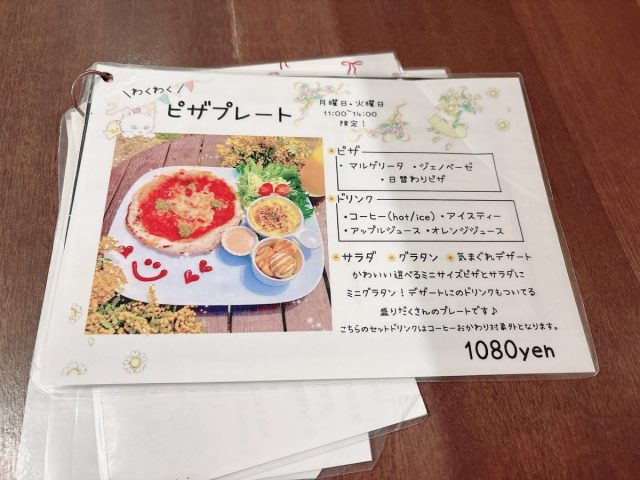 \わくわく/
ピザプレート
月曜日・火曜日
11:00~14:00
限定!
ピザ
・マルゲリータ ・ジェノベーゼ
・日替わりピザ
ドリンク
・コーヒー(hot/ice)・アイスティー
・アップルジュース・オレンジジュース
サラダ グラタン 気まぐれデザート
かわいい選べるミニサイズピザとサラダに
ミニグラタン!デザートにのドリンクもついてる
盛りだくさんのプレートです♪
こちらのセットドリンクはコーヒーおかわり対象外となります。
1080yen